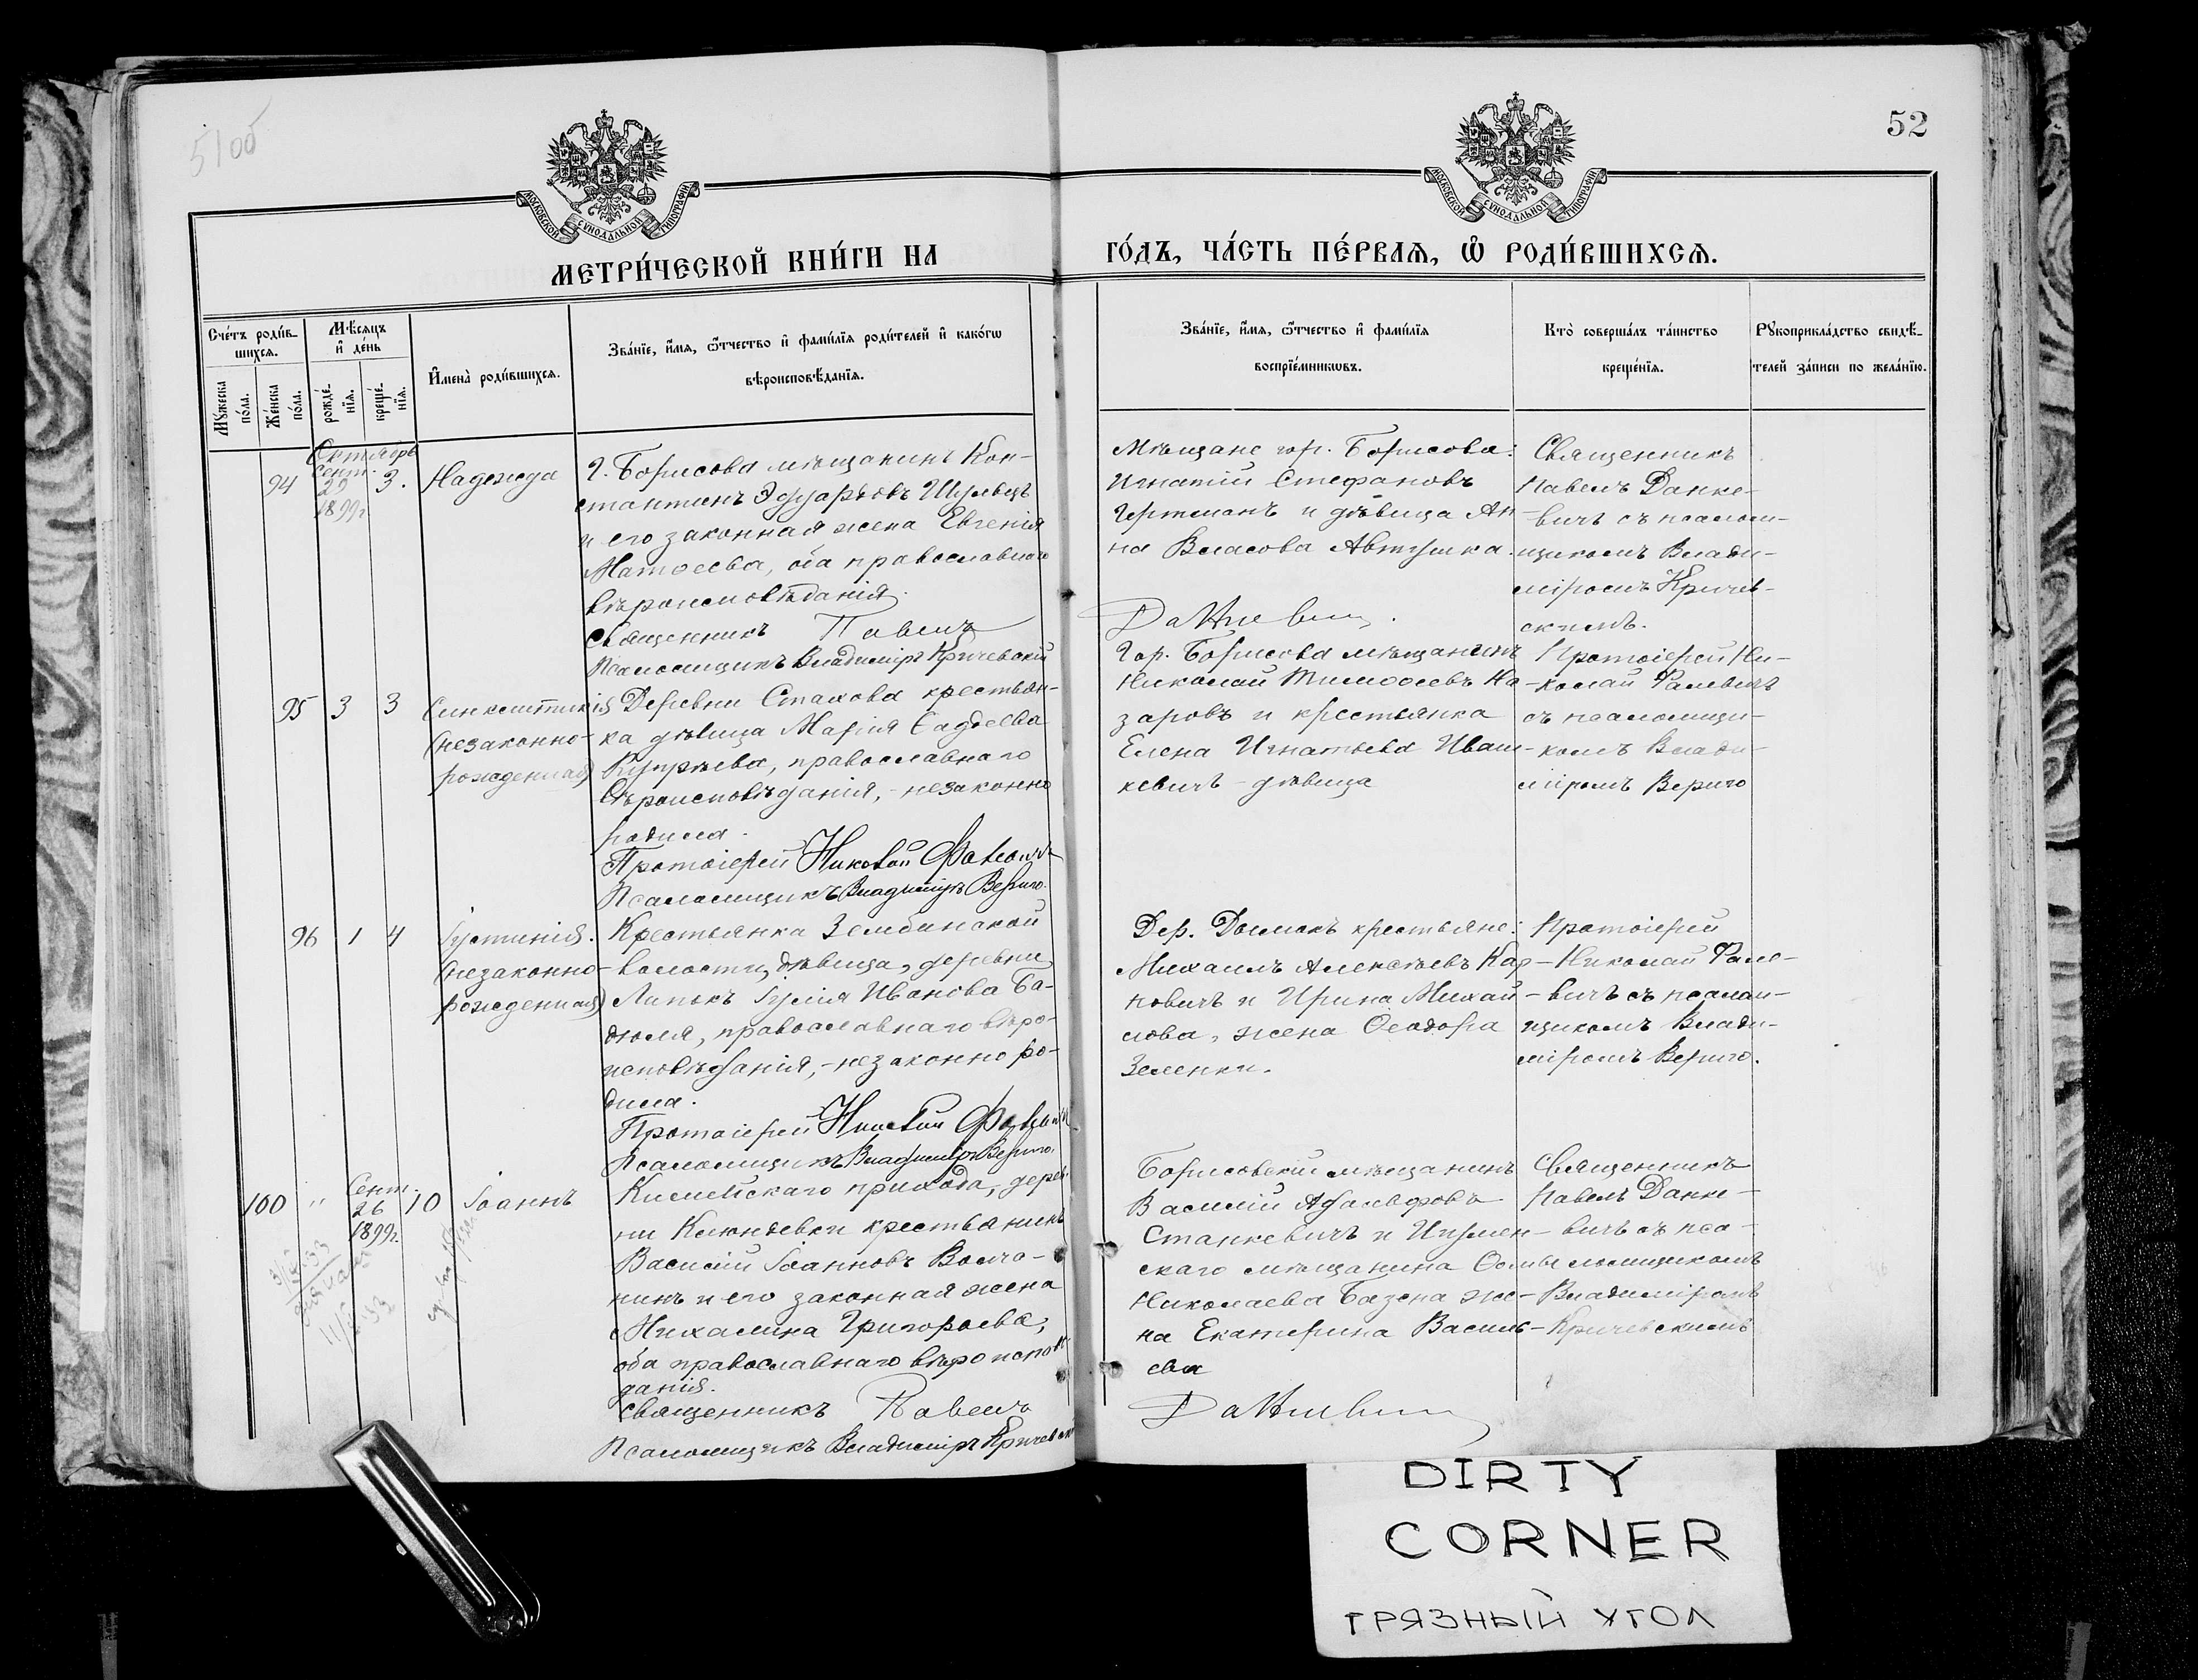 52
МОСКОВСКОЙ СУНОДАЛЬНОЙ ТИПОГРАФІИ
МОСКОВСКОЙ СУНОДАЛЬНОЙ ТИПОГРАФІИ
МЕТРИ́ЧЕСКОЙ КНИ́ГИ НА
ГО́ДЪ, ЧА́СТЬ ПЕ́РВАѦ, Ѡ҆ РОДИ́ВШИХСѦ.
Сче́тъ роди́в-
шихсѧ.
Мꙋ́жеска
по́ла.
Же́нска
по́ла.
Мѣ́сѧцъ
и҆ де́нь
рожде́-
нїѧ.
креще́-
нїѧ.
И҆мена̀ роди́вшихсѧ.
Зва́нїе, и҆́мѧ, ѻ҆́тчество и҆ фамі́лїѧ роди́телей и҆ како́гѡ
вѣроисповѣ́данїѧ.
Зва́нїе, и҆́мѧ, ѻ҆́тчество и҆ фамі́лїѧ
воспрїе́мникѡвъ.
Кто̀ соверша́лъ та́инство
креще́нїѧ.
Рꙋкоприкла́дство свидѣ́-
телей за́писи по жела́нїю.
Октябрь
94
Сент.
29
1899г.
3.
Надежда
Г. Борисова мѣщанинъ Кон-
стантинъ Эдуардовъ Шульцъ
и его законная жена Евгенія
Матѳеева, оба православнаго
вѣроисповѣданія.
Священникъ Павелъ
Псаломщикъ Владиміръ Кричевскій
Мѣщане гор. Борисова:
Игнатій Стефановъ
Гертманъ и дѣвица Ан-
на Власова Автушка.
Священникъ
Павелъ Данке-
вичъ съ псалом-
щикомъ Влади-
міромъ Кричев-
скимъ.
95
3
3
(незаконно-
рожденная)
Деревни Стахова крестьян-
ка дѣвица Марія Ѳадѣева
Купрѣева, православнаго
вѣроисповѣданія, - незаконно
родила.
Протоіерей Николай
Псаломщикъ Владиміръ Вериго.
Гор. Борисова мѣщанинъ
Николай Тимоѳеевъ На-
заровъ и крестьянка
Елена Игнатьева Иваш-
кевичъ - дѣвица
Протоіерей Ни-
колай Фалевичъ
съ псаломщи-
комъ Влади-
міромъ Вериго
96
1
4
Іустинія.
(незаконно-
рожденная)
Крестьянка Зембинской
волости, дѣвица, деревни
Липокъ Іулія Иванова Ба-
дюля, православнаго вѣро-
исповѣданія, - незаконно ро-
дила.
Протоіерей Николай
Псаломщикъ Владиміръ Вериго.
Дер. Дымокъ крестьяне:
Михаилъ Алексѣевъ Кар-
повичъ и Ирина Михай-
лова, жена Ѳеодора
Зеленки.
Протоіерей
Николай Фале-
вичъ съ псалом-
щикомъ Влади-
міромъ Вериго.
100
"
Сент.
26
1899г.
10
Іоаннъ
прихода, дерев-
ни крестьянинъ
Василій Іоанновъ Волча-
нинъ и его законная жена
Михалина Григорьева,
оба православнаго вѣроисповѣ-
данія.
Священникъ Павелъ
Псаломщикъ Владиміръ Кричевскій
Борисовскій мѣщанинъ
Василій Адольфовъ
Станкевичъ и Игумен-
скаго мѣщанина
Николаева Базена же-
на Екатерина Василь-
ева
Священникъ
Павелъ Данке-
вичъ съ пса-
ломщикомъ
Владиміромъ
Кричевскимъ
DIRTY
CORNER
ГРЯЗНЫЙ УГОЛ